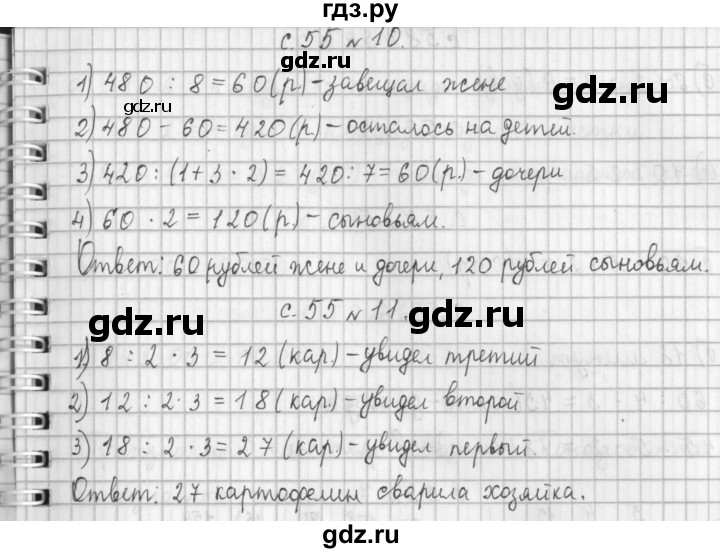 гдз.ру
с. 55 № 10.
gdz.ru
1) 480 : 8 = 60 (р) - завещал жене
gdz.ru
gdz.ru
2) 480 - 60 = 420 (р) - осталось на детей.
3) 420 : (1 + 3 · 2) = 420 : 7 = 60 (р.) - дочери
gdz.ru
gdz.ru
4) 60 · 2 = 120 (р) - сыновьям.
Ответ: 60 рублей жене и дочери, 120 рублей сыновьям.
с. 55 № 11.
gdz.ru
gdz.ru
1) 8 : 2 · 3 = 12 (кар) - увидел третий
2) 12 : 2 · 3 = 18 (кар) - увидел второй
gdz.ru
gdz.ru
3) 18 : 2 · 3 = 27 (кар) - увидел первый.
Ответ: 27 картофелин сварила хозяйка.
gdz.ru
gdz.ru